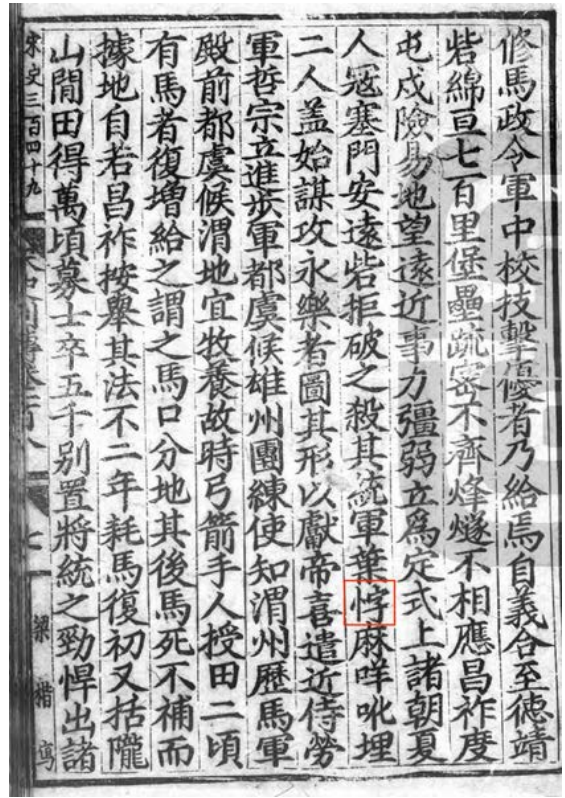 修馬政令軍中校技擊優者乃給焉自義合至德靖
砦綿亘七百里堡壘疏密不齊烽燧不相應昌祚度
屯戍險易地望遠近事力彊弱立爲定式上諸朝夏
人寇塞門安遠砦拒破之殺其統軍葉悖麻咩吪埋
二人盖始謀攻永樂者圖其形以獻帝喜遣近侍勞
軍哲宗立進步軍都虞候雄州團練使知渭州歷馬軍
殿前都虞候渭地宜牧養故時弓箭手人授田二頃
有馬者復增給之謂之馬口分地其後馬死不補而
據地自若昌祚按舉其法不二年耗馬復初又括隴
山間田得萬頃募士卒五千别置將統之勁悍出諸
宋史三百四十九
七
梁楷寫